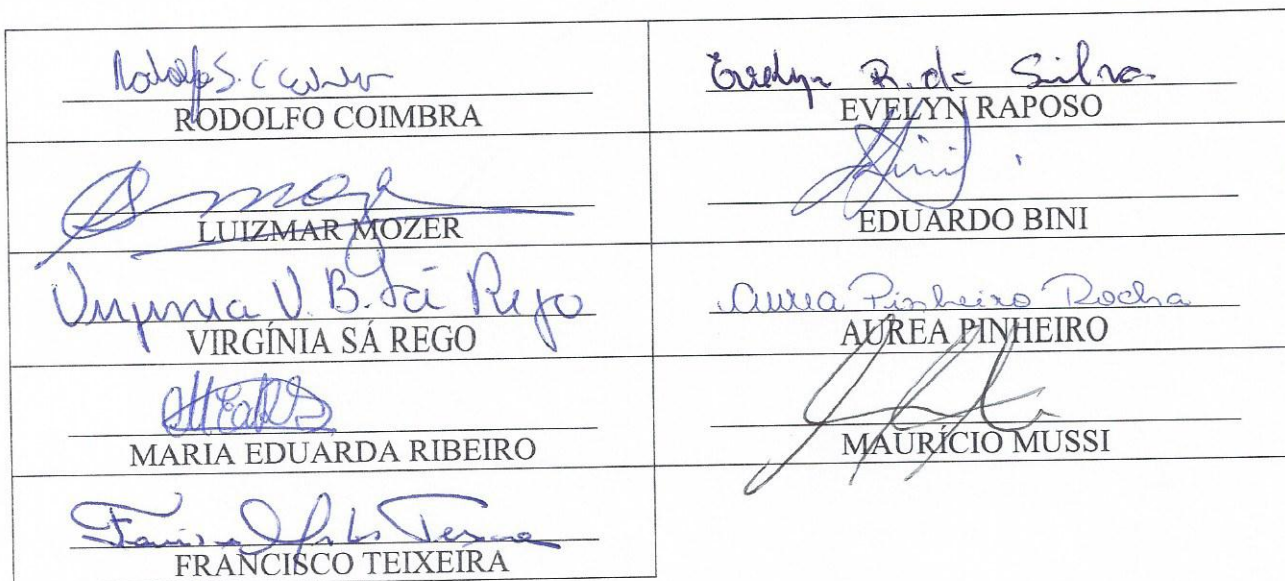 Rodolfo S. C
RODOLFO COIMBRA
Evelyn R. da Silva
EVELYN RAPOSO
LUIZMAR MOZER
Bini
EDUARDO BINI
Virginia V. B. Sá Rego
VIRGÍNIA SÁ REGO
Aurea Pinheiro Rocha
AUREA PINHEIRO
MARIA EDUARDA RIBEIRO
MAURÍCIO MUSSI
FRANCISCO TEIXEIRA